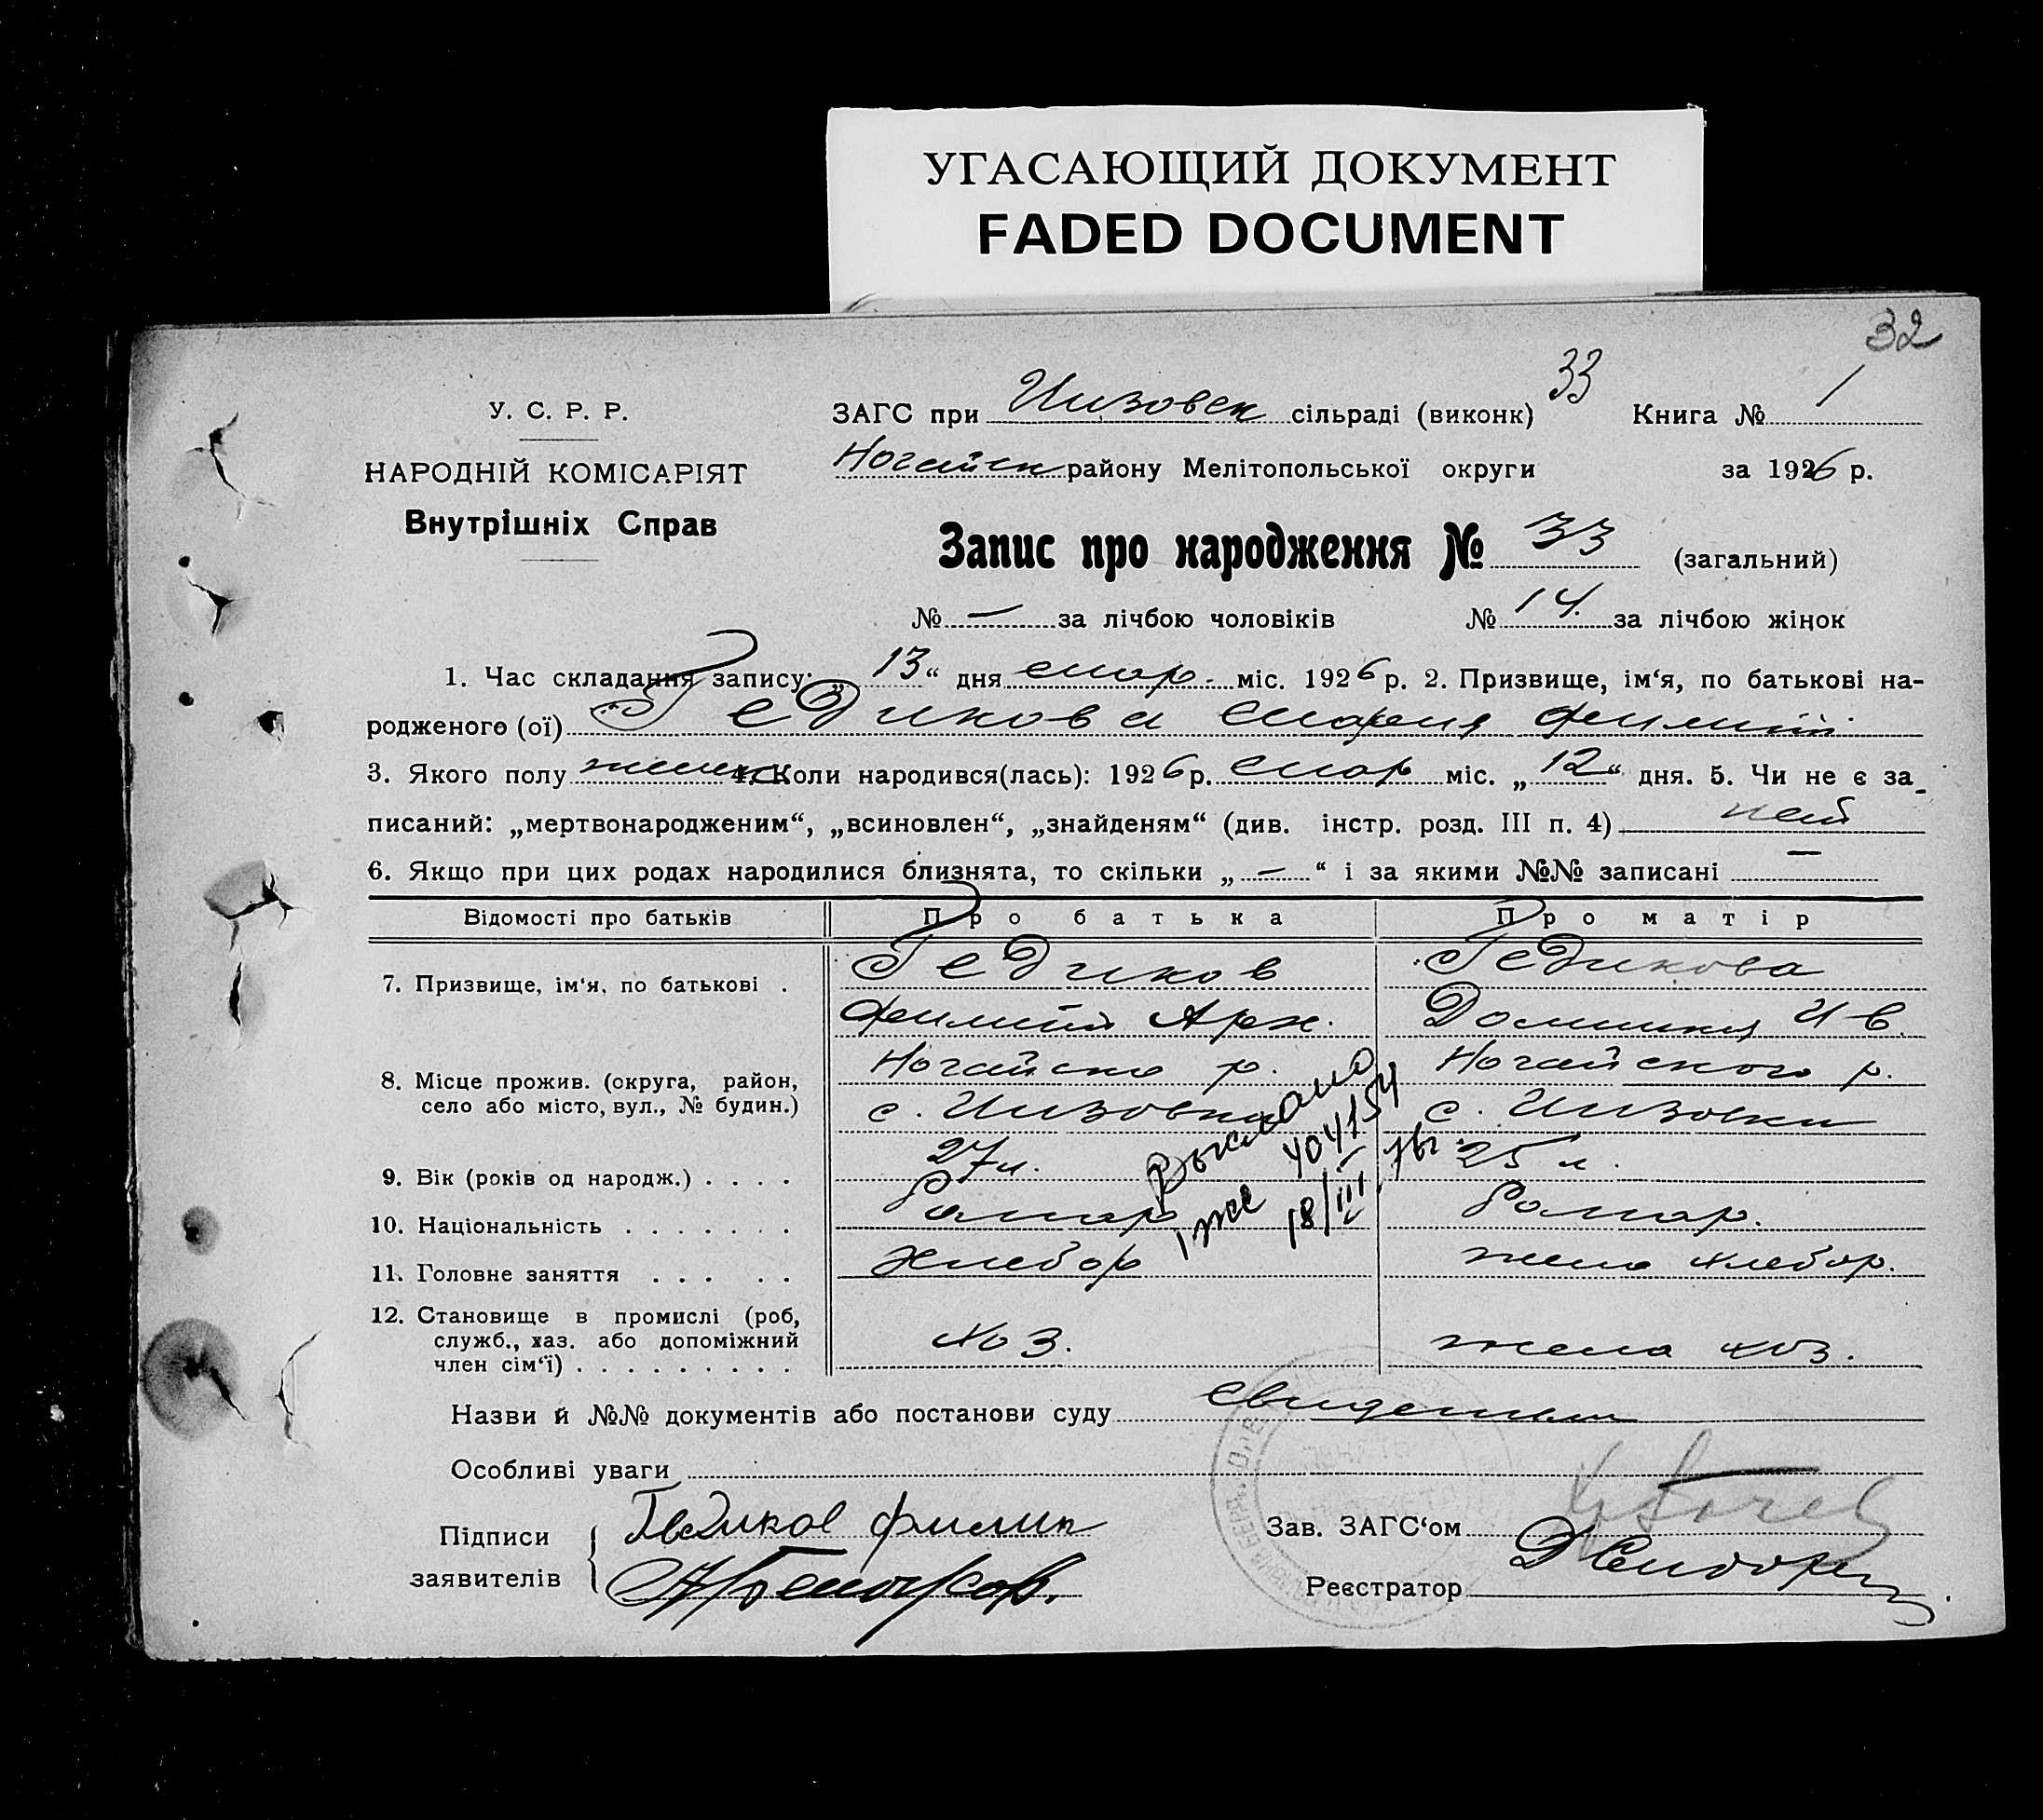 УГАСАЮЩИЙ ДОКУМЕНТ
FADED DOCUMENT
32
33
У. С. Р. Р.
ЗАГС при Низовск сільраді (виконк) Книга № 1
НАРОДНІЙ КОМІСАРІЯТ
Ногайск району Мелітопольської округи за 1926 р.
Внутрішніх Справ
Запис про народження № 33 (загальний)
№ — за лічбою чоловіків № 14. за лічбою жінок
1. Час складання запису: „13“ дня мар. міс. 1926 р. 2. Призвище, ім‘я, по батькові на-
родженого (ої) Гедикова Мария Филип
3. Якого полу женск 4. Коли народився(лась): 1926 р. мар міс. „12“ дня. 5. Чи не є за-
писаний: „мертвонародженим“, „всиновлен“, „знайденям“ (див. інстр. розд. III п. 4) нет
6. Якщо при цих родах народилися близнята, то скільки „—“ і за якими №№ записані —
Відомості про батьків Про батька Про матір
7. Призвище, ім‘я, по батькові . Гедиков Гедикова
Филип Арх. Домника Ив.
8. Місце прожив. (округа, район, село або місто, вул., № будин.) Ногайско р. Ногайского р.
с. Низовка с. Низовки
9. Вік (років од народж.) . . . . 27 л. 25 л.
10. Національність . . . . . . . Ромар Ромар.
11. Головне заняття . . . . . Хлебор жена хлебор.
12. Становище в промислі (роб, служб., хаз. або допоміжний член сім‘ї) . . . . . . . . . хоз. жена хоз.
404154
18/III
Назви й №№ документів або постанови суду
Особливі уваги
Підписи заявителів Гедиков Филип
Зав. ЗАГС‘ом
Реєстратор